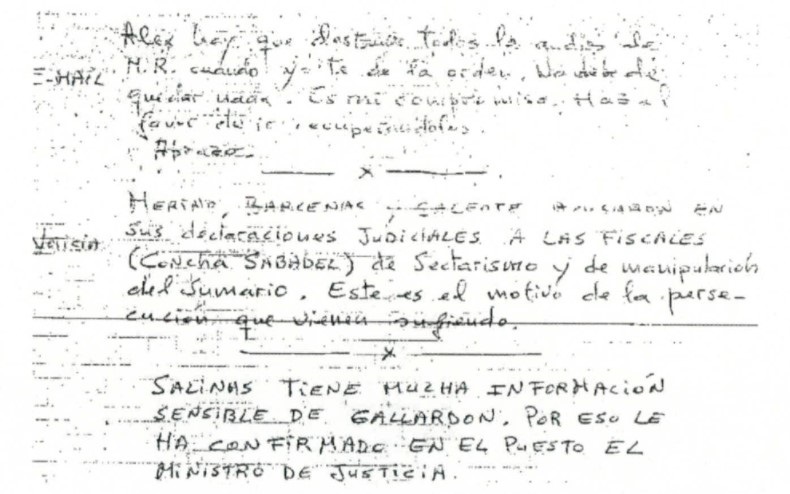 Alex hay que destruir todos los audios de
E-MAIL
M.R. cuando yo te de la orden. No debe de
quedar nada. Es mi compromiso. Haz el
favor de ir recuperandolos.
Abrazo.
x
MERINO, BARCENAS y GALEOTE ACUSARON EN
Noticia
sus declaraciones JUDICIALES A LAS FISCALES
(CONCHA SABADEL) de Sectarismo y de manipulación
del Sumario. Este es el motivo de la perse-
cución que vienen sufriendo.
x
SALINAS TIENE MUCHA INFORMACIÓN
SENSIBLE DE GALLARDON. POR ESO LE
HA CONFIRMADO EN EL PUESTO EL
MINISTRO DE JUSTICIA.